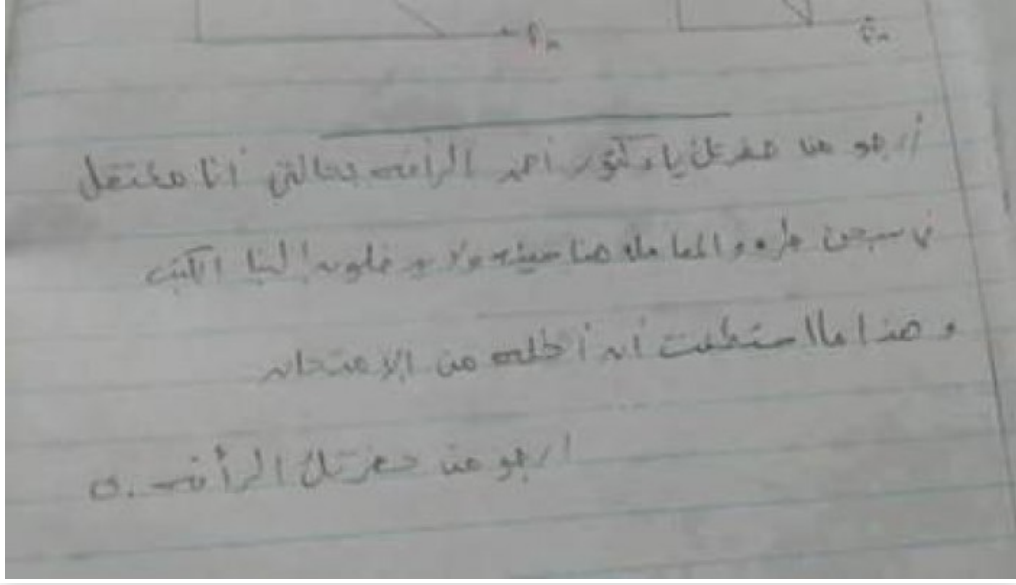 أرجو من حضرتك يا دكتور أحمد الرأفة بحالتي أنا معتقل
في سجن طره والمعاملة هنا سيئة ولا يدخلون إلينا الكتب
وهذا ما استطعت أن أحله من الامتحان
ارجو من حضرتك الرأفة.